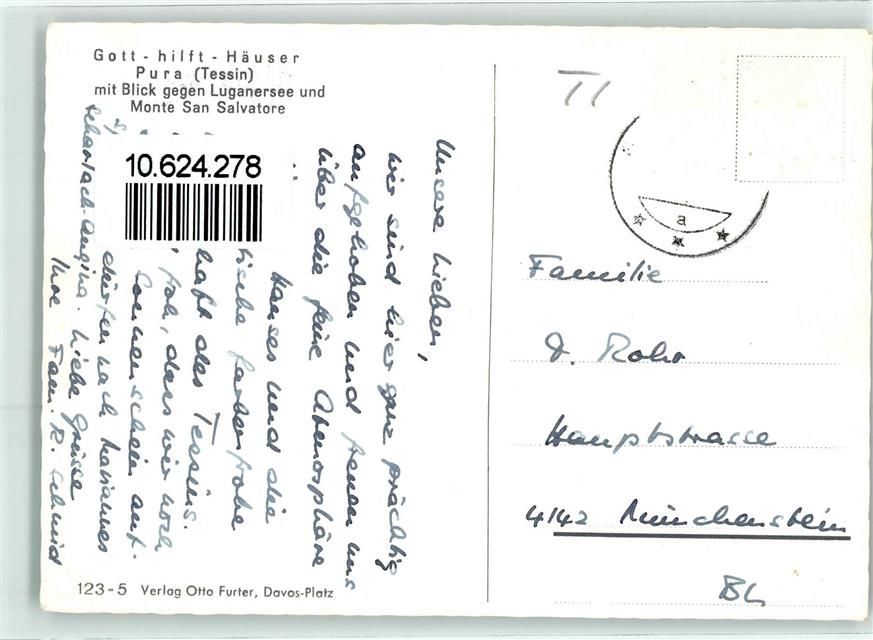 Gott - hilft - Häuser
Pura (Tessin)
mit Blick gegen Luganersee und
Monte San Salvatore
10.624.278
Unsere Lieben,
wir sind hier ganz prächtig
aufgehoben und freuen uns
über die feine Atmosphäre
Hauses und die
farbenfrohe
haft des Tessins.
froh, dass wir noch
Sonnenschein auf-
dürfen nach
Scharlach-Angina. Liebe Grüsse
Ihre Fam. R. Schmid
123-5 Verlag Otto Furter, Davos-Platz
a
Familie
D. Rohr
Hauptstrasse
4142 Münchenstein
BL